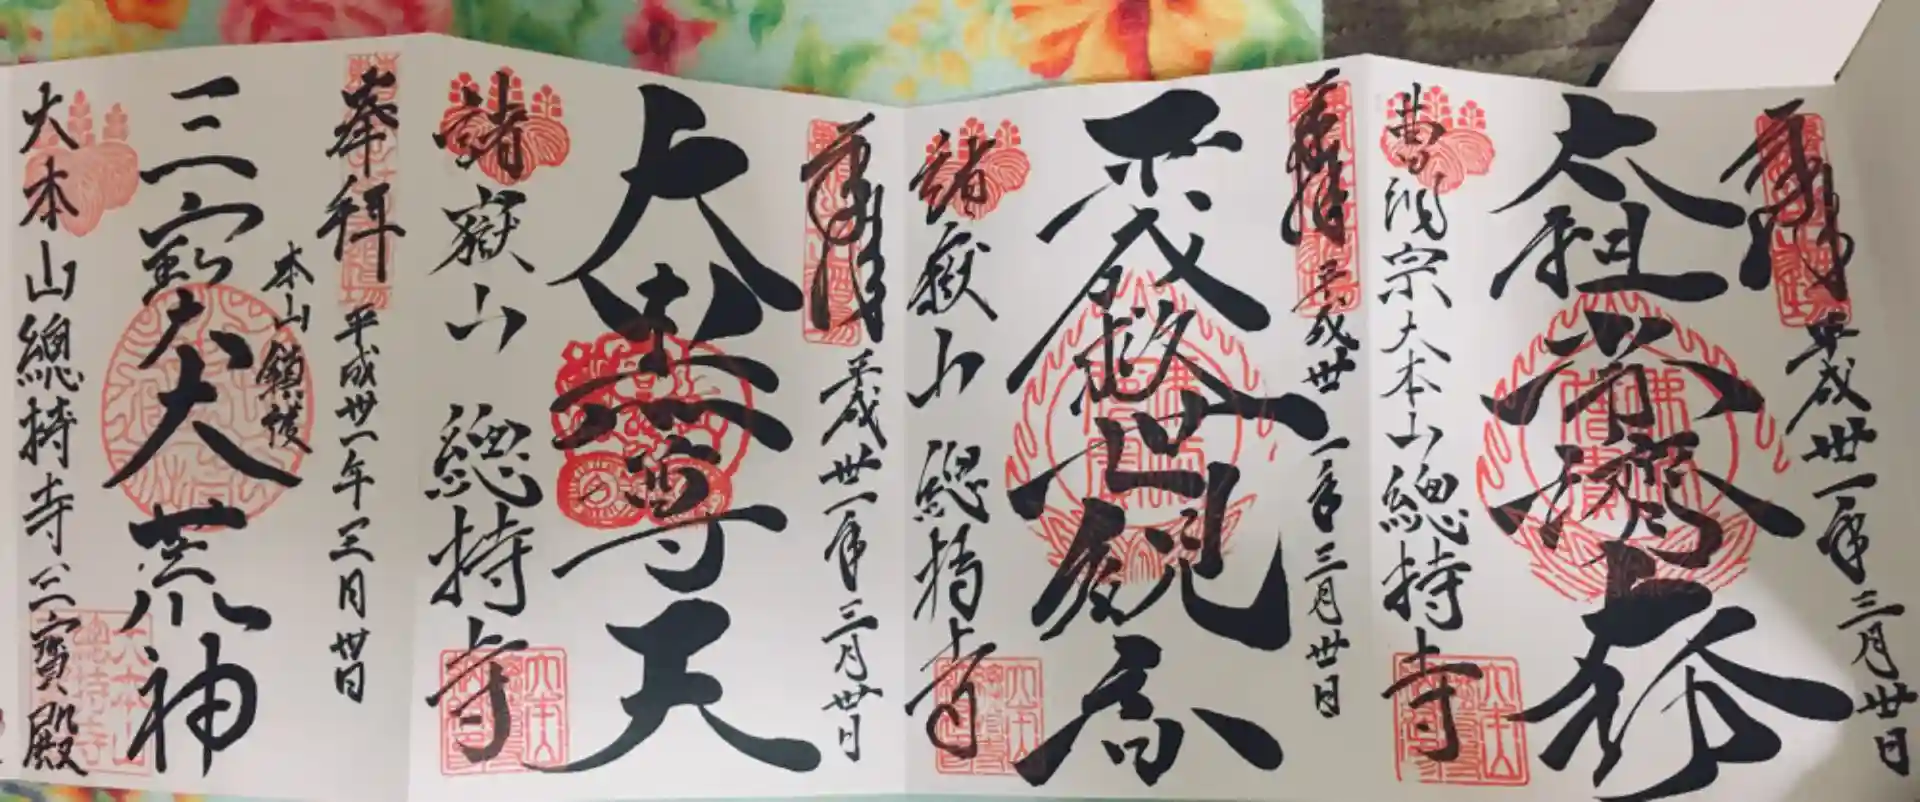 奉拝 平成卅一年三月卅日
太祖常濟大師
曹洞宗大本山總持寺
奉拝 平成卅一年三月卅日
平成救世観音
諸嶽山總持寺
奉拝 平成卅一年三月卅日
大黒尊天
諸嶽山總持寺
奉拝 平成卅一年三月卅日
本山鎮護
三寳大荒神
大本山總持寺三寶殿